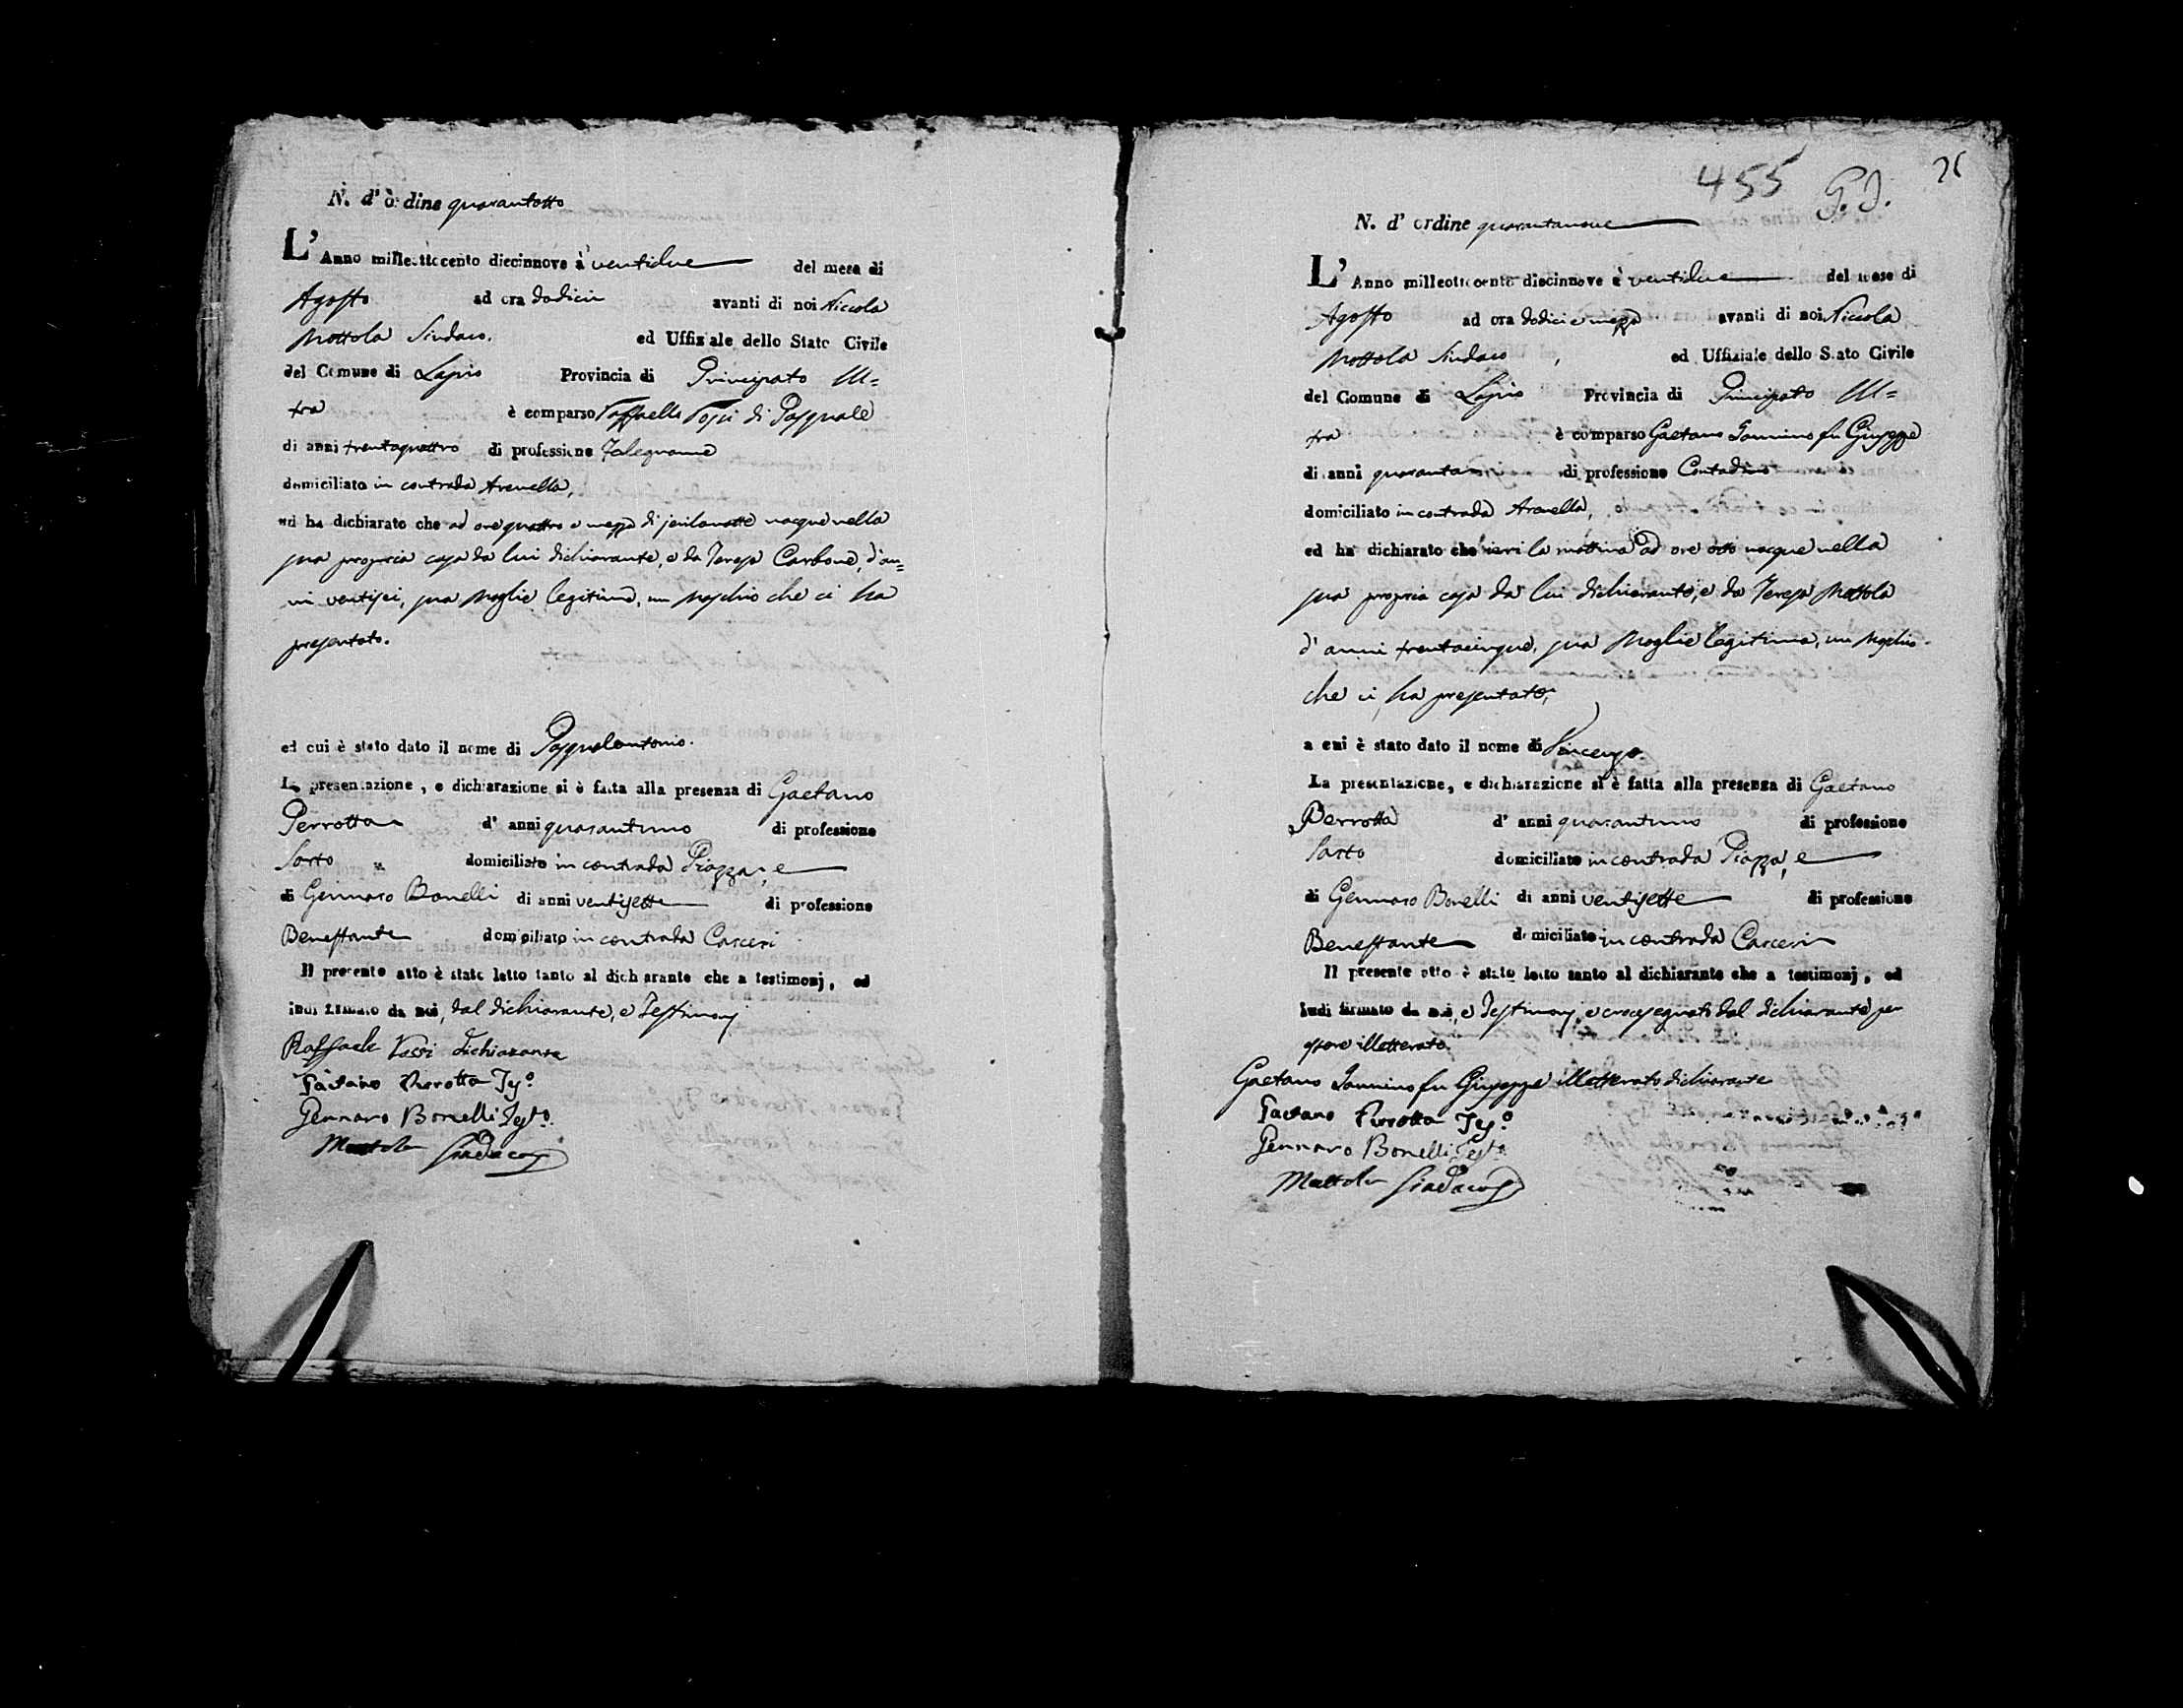 N. d'ordine quarantotto
L'Anno milleottocento diecinnove à ventidue del mese di
Agosto ad ora dodici avanti di noi Niccola
Mottola Sindaco. ed Uffiziale dello Stato Civile
del Comune di Lapio Provincia di Principato Ul=
tra è comparso Raffaele di Pasquale
di anni trentaquattro di professione Falegname
domiciliato in contrada Aranella,
ed ha dichiarato che ad ore quattro e mezza di jerilanotte nacque nella
sua propria casa da lui dichiarante, e da Teresa Carbone, d'an=
ni ventisei, sua Moglie legitima, un Maschio che ci ha
presentato.
ed cui è stato dato il nome di Pasqualantonio.
La presentazione, e dichiarazione si è fatta alla presenza di Gaetano
Perrotta d'anni quarantuno di professione
Sarto domiciliato in contrada Piazza, e
di Gennaro Bonelli di anni ventisette di professione
Benestante domiciliato in contrada Carceri
Il presente atto è stato letto tanto al dichiarante che a testimonj, ed
indi firmato da noi, dal dichiarante, e Testimonj
Raffaele dichiarante
Gaetano Perrotta Tes.º
Gennaro Bonelli Test.º
Mottola Sindaco
455 26
N. d'ordine quarantanove
L'Anno milleottocento diecinnove à ventidue del mese di
Agosto ad ora dodici e mezza avanti di noi Niccola
Mottola Sindaco, ed Uffiziale dello Stato Civile
del Comune di Lapio Provincia di Principato Ul=
tra è comparso Gaetano Iannino fu Giuseppe
di anni quaranta di professione Contadino
domiciliato in contrada Aranella,
ed ha dichiarato che ieri la mattina ad ore otto nacque nella
sua propria casa da lui dichiarante, e da Teresa Mottola
d'anni trentacinque, sua Moglie legitima, un Maschio
che ci ha presentato,
a cui è stato dato il nome di Vincenzo.
La presentazione, e dichiarazione si è fatta alla presenza di Gaetano
Perrotta d'anni quarantuno di professione
Sarto domiciliato in contrada Piazza, e
di Gennaro Bonelli di anni ventisette di professione
Benestante domiciliato in contrada Carceri
Il presente atto è stato letto tanto al dichiarante che a testimonj, ed
indi firmato da noi, e Testimonj, e crocesegnato dal dichiarante per
essere illetterato.
Gaetano Iannino fu Giuseppe illetterato dichiarante
Gaetano Perrotta Tes.º
Gennaro Bonelli Test.º
Mottola Sindaco